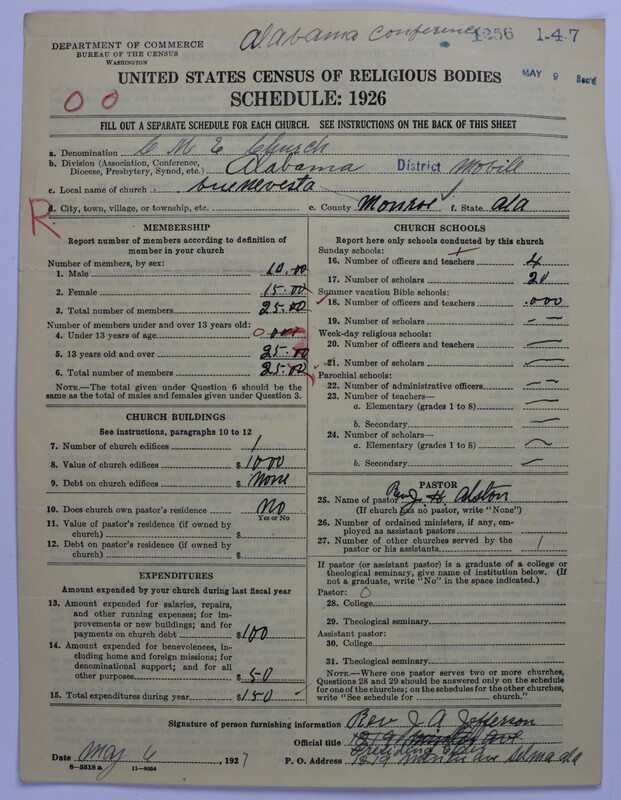 Alabama Conference
1256 1-4-7
DEPARTMENT OF COMMERCE
BUREAU OF THE CENSUS
WASHINGTON
MAY 9 Rec'd
UNITED STATES CENSUS OF RELIGIOUS BODIES
SCHEDULE: 1926
0 0
FILL OUT A SEPARATE SCHEDULE FOR EACH CHURCH. SEE INSTRUCTIONS ON THE BACK OF THIS SHEET
a. Denomination C M E Church
b. Division (Association, Conference, Diocese, Presbytery, Synod, etc.) Alabama District Mobill
c. Local name of church buenevesta
d. City, town, village, or township, etc. e. County Monroe f. State ala
R
MEMBERSHIP
Report number of members according to definition of
member in your church
Number of members, by sex:
1. Male 10.00
2. Female 15.00
3. Total number of members 25.00
Number of members under and over 13 years old:
4. Under 13 years of age 0 000
5. 13 years old and over 25.00
6. Total number of members 25.00
NOTE.—The total given under Question 6 should be the
same as the total of males and females given under Question 3.
CHURCH BUILDINGS
See instructions, paragraphs 10 to 12
7. Number of church edifices 1
8. Value of church edifices $ 1000
9. Debt on church edifices $ none
10. Does church own pastor's residence No
Yes or No
11. Value of pastor's residence (if owned by
church) $
12. Debt on pastor's residence (if owned by
church) $
EXPENDITURES
Amount expended by your church during last fiscal year
13. Amount expended for salaries, repairs,
and other running expenses; for im-
provements or new buildings; and for
payments on church debt $ 100
14. Amount expended for benevolences,
including home and foreign missions; for
denominational support; and for all
other purposes $ 50
15. Total expenditures during year $ 150
CHURCH SCHOOLS
Report here only schools conducted by this church
Sunday schools:
16. Number of officers and teachers 4
17. Number of scholars 20
Summer vacation Bible schools:
18. Number of officers and teachers .000
19. Number of scholars - -
Week-day religious schools:
20. Number of officers and teachers —
21. Number of scholars —
Parochial schools:
22. Number of administrative officers - -
23. Number of teachers—
a. Elementary (grades 1 to 8) —
b. Secondary —
24. Number of scholars—
a. Elementary (grades 1 to 8) —
b. Secondary —
PASTOR
25. Name of pastor Rev J. H. Alston
(If church has no pastor, write "None")
26. Number of ordained ministers, if any, em-
ployed as assistant pastors
27. Number of other churches served by the
pastor or his assistants 1
If pastor (or assistant pastor) is a graduate of a college or
theological seminary, give name of institution below. (If
not a graduate, write "No" in the space indicated.)
Pastor: 0
28. College
29. Theological seminary
Assistant pastor:
30. College
31. Theological seminary
NOTE.—Where one pastor serves two or more churches,
Questions 28 and 29 should be answered only on the schedule
for one of the churches; on the schedules for the other churches,
write "See schedule for church."
Signature of person furnishing information Rev J A Jefferson
Official title 1219 ave
Presiding elder
Date May 6, 1927 P. O. Address 1219 ave Selma ala
8-5518 a 11-9094